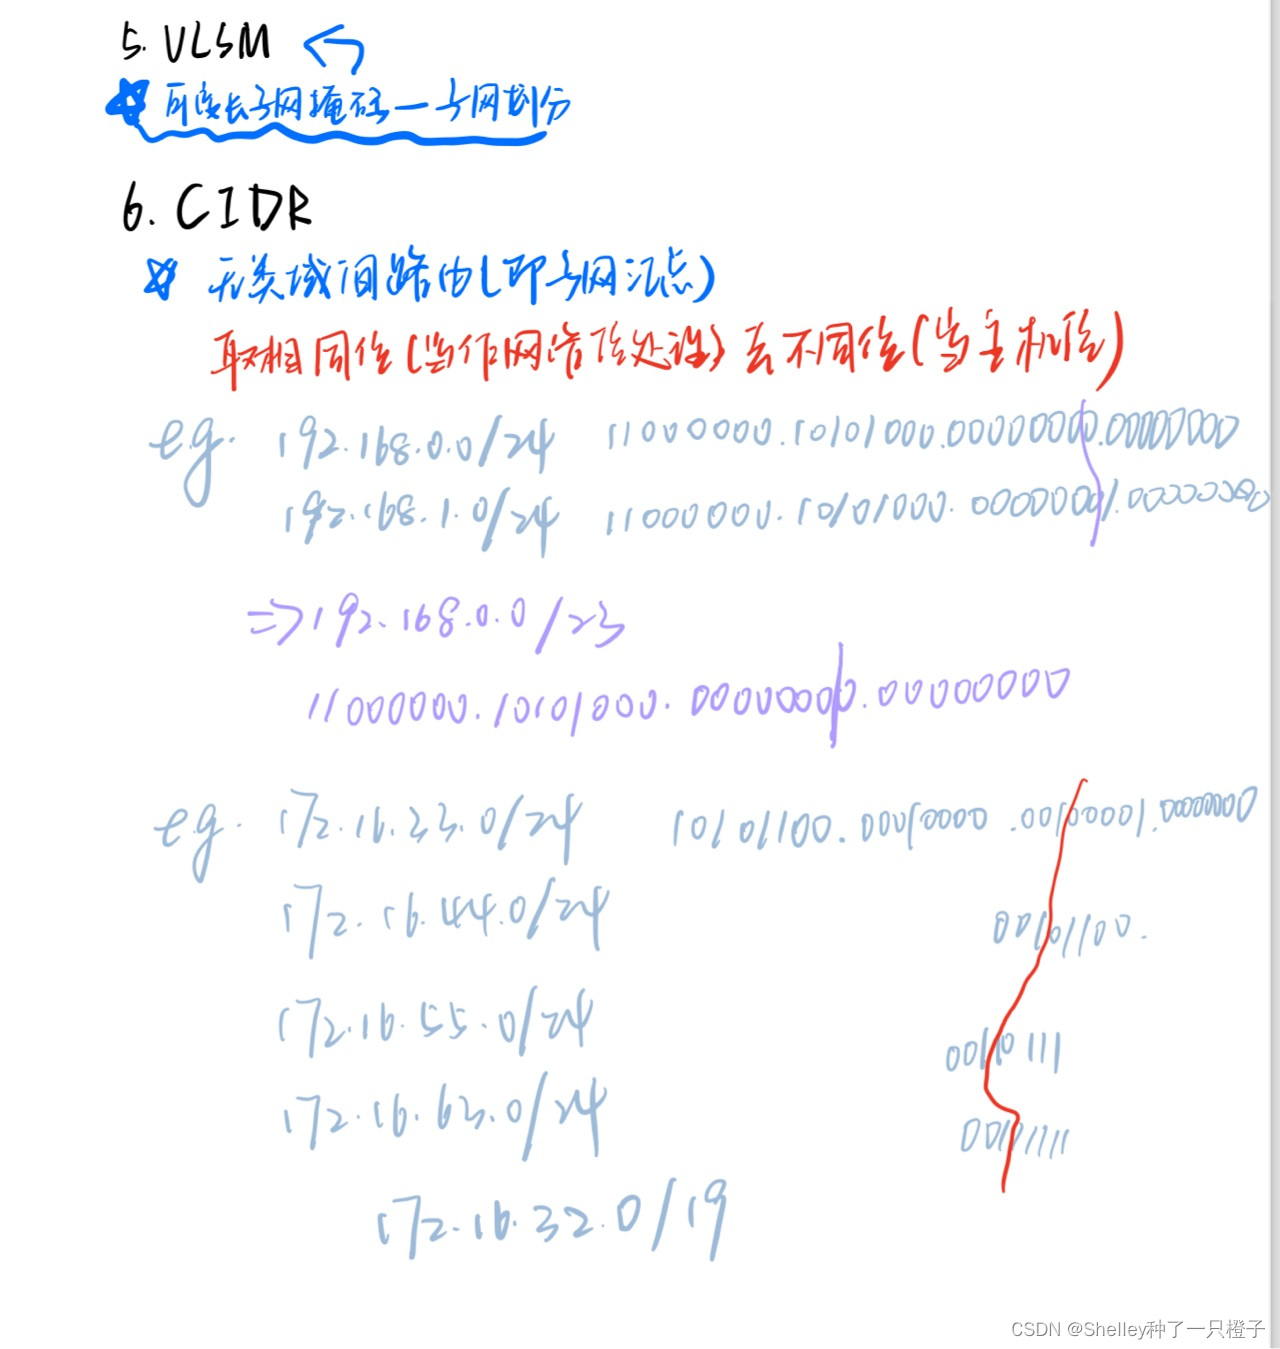 5. VLSM
可变长子网掩码—子网划分
6. CIDR
无类域间路由(即子网汇总)
取相同位(当作网络位处理)去不同位(当主机位)
e.g. 192.168.0.0/24 11000000.10101000.00000000.00000000
192.168.1.0/24 11000000.10101000.00000001.00000000
=>192.168.0.0/23
11000000.10101000.00000000.00000000
e.g. 172.16.33.0/24 10101100.00010000.00100001.00000000
172.16.44.0/24 00101100.
172.16.55.0/24 00110111
172.16.63.0/24 00111111
172.16.32.0/19
CSDN @Shelley种了一只橙子